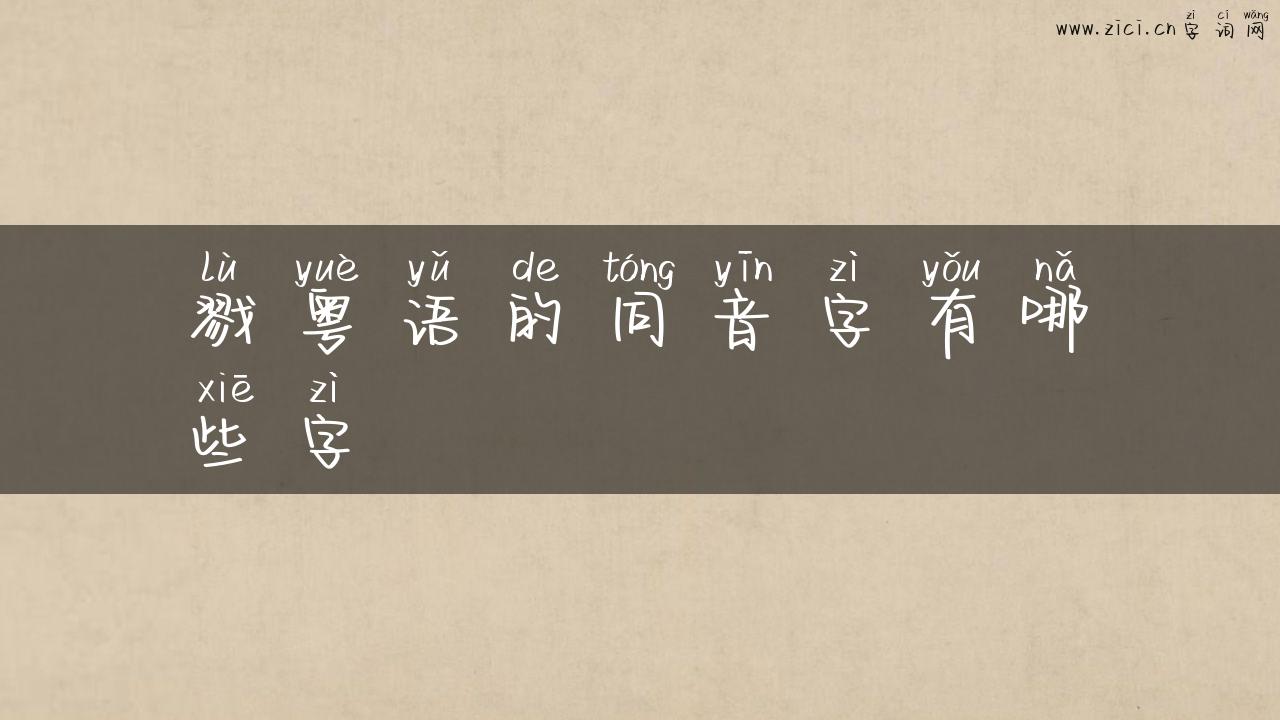 zì cí wǎng
www.zici.cn 字词网
lù yuè yǔ de tóng yīn zì yǒu nǎ
戮粤语的同音字有哪
xiē zì
些字